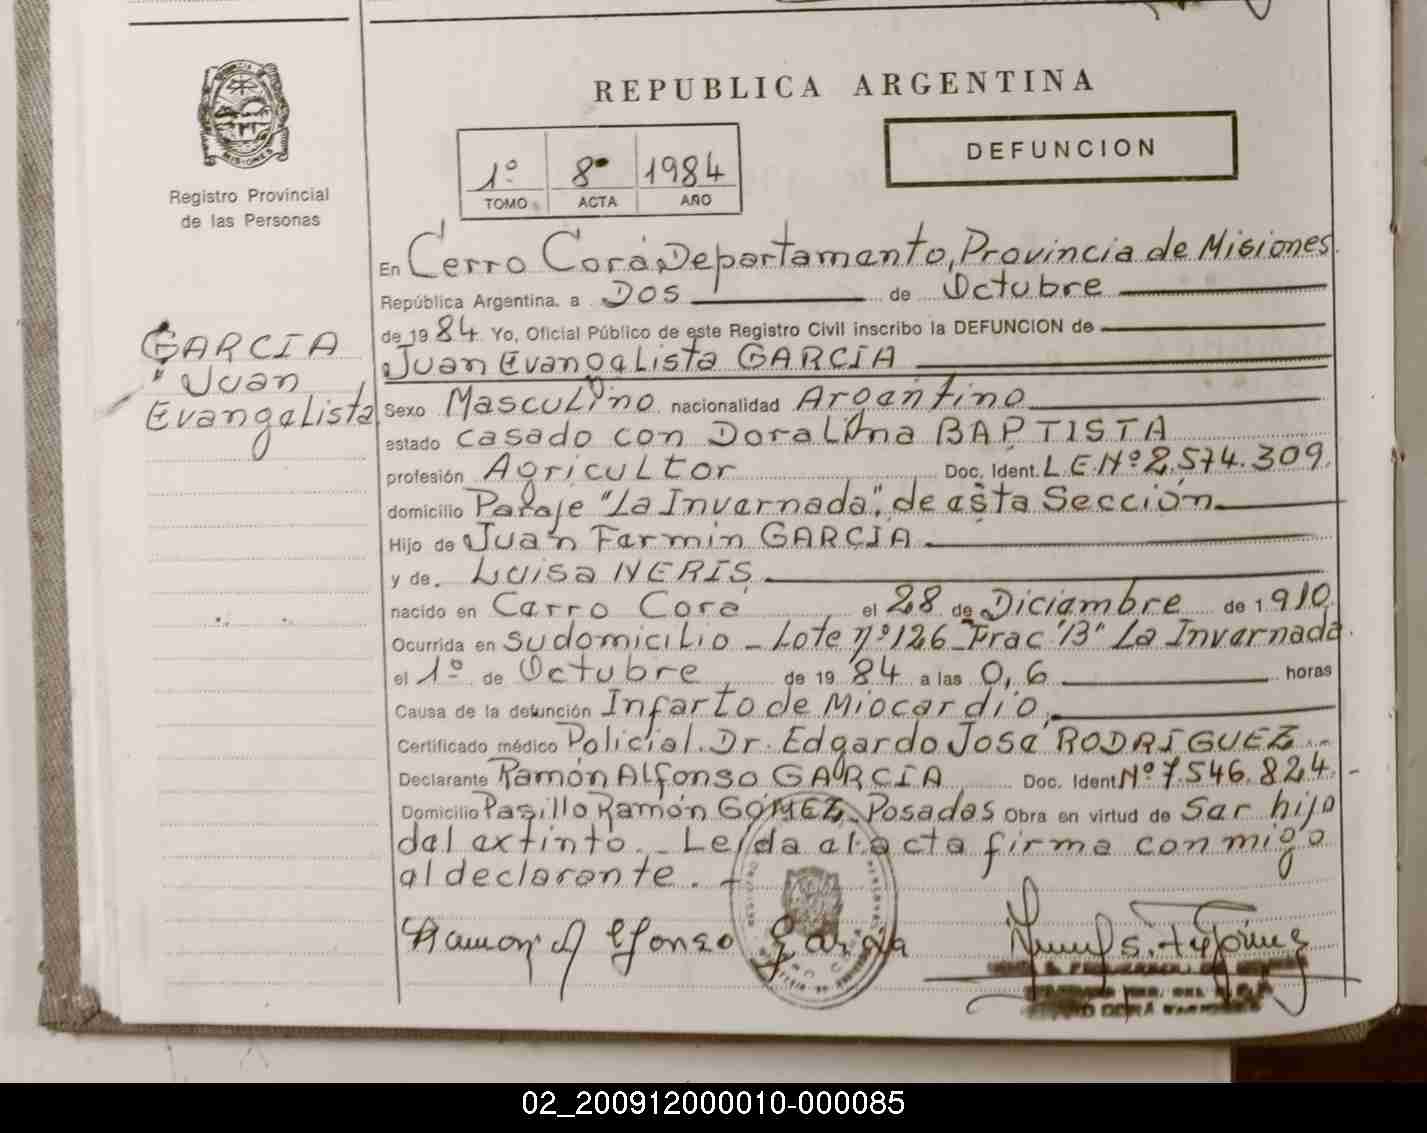 REPUBLICA ARGENTINA
MISIONES
Registro Provincial
de las Personas
1º 8 1984
TOMO ACTA AÑO
DEFUNCION
GARCIA
Juan
Evangelista
En Cerro Corá, Departamento, Provincia de Misiones
República Argentina, a Dos de Octubre
de 1984 Yo, Oficial Público de este Registro Civil inscribo la DEFUNCION de
Juan Evangelista GARCIA
Sexo Masculino nacionalidad Argentino
estado casado con Doralina BAPTISTA
profesión Agricultor Doc. Ident. L.E.Nº 2.574.309
domicilio Paraje "La Invernada", de esta Sección
Hijo de Juan Fermin GARCIA
y de Luisa NERIS
nacido en Cerro Corá el 28 de Diciembre de 1910
Ocurrida en su domicilio - Lote nº 126 Frac "B" La Invernada.
el 1º de Octubre de 1984 a las 0,6 horas
Causa de la defunción Infarto de Miocardio,
Certificado médico Policial. Dr. Edgardo José RODRIGUEZ
Declarante Ramón Alfonso GARCIA Doc. Ident Nº 7.546.824.-
Domicilio Pasillo Ramón GOMEZ, Posadas Obra en virtud de Ser hijo
del extinto.- Leida el acta firma conmigo
al declarante.-
Ramon Alfonso Garcia
02_200912000010-000085